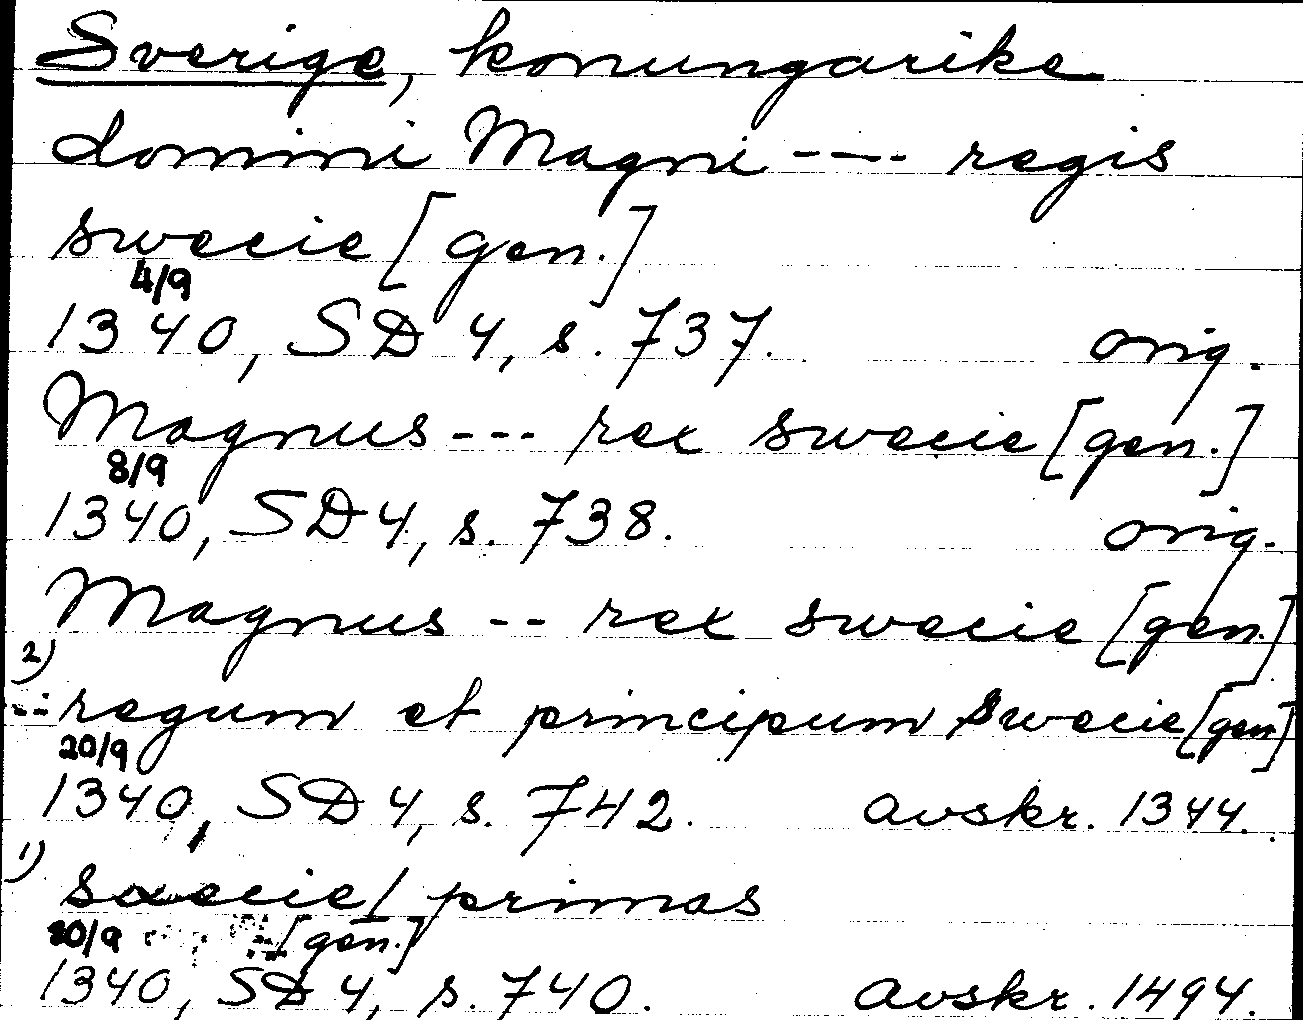 Sverige, konungarike
domini Magni ---- regis
swecie [gen.]
4/9
1340, SD 4, s. 737. orig.
Magnus --- rex swecie [gen.]
8/9
1340, SD 4, s. 738. orig.
Magnus -- rex swecie [gen.]
2)
-- regum et principum swecie [gen.]
20/9
1340, SD 4, s. 742. avskr. 1344.
1)
suecie / primas
10/9 [gen.]
1340, SD 4, s. 740. avskr. 1494.